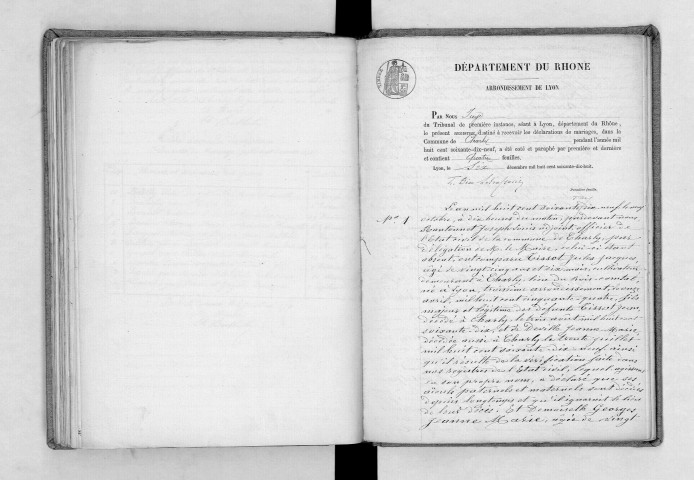 DÉPARTEMENT DU RHONE
ARRONDISSEMENT DE LYON
PAR NOUS Juge
du Tribunal de première instance, séant à Lyon, département du Rhône,
le présent destiné à recevoir les déclarations de mariages, dans la
Commune de Charly pendant l'année mil
huit cent soixante-dix-neuf, a été coté et paraphé par première et dernière
et contient quatre feuilles.
Lyon, le dix décembre mil huit cent soixante-dix-huit.
Première feuille.
N° 1
L'an mil huit cent soixante dix neuf le
octobre, à dix heures du matin, pardevant nous
Joseph Louis adjoint, officier de
l'état civil de la commune de Charly, par
délégation de M. le Maire, celui-ci étant
absent, ont comparu Tissot Jules Jacques,
agé de vingt cinq ans et dix mois, cultivateur
demeurant à Charly, lieu du
né à Lyon, troisième arrondissement, le
avril, mil huit cent cinquante quatre, fils
majeur et légitime des défunts Tissot Jean
décédé à Charly le trois août mil huit cent
soixante dix, et de Deville Jeanne Marie,
décédée aussi à Charly le trente juillet
mil huit cent soixante dix neuf ainsi
qu'il résulte de la vérification faite dans
nos registres de l'état civil, lequel agissant
en son propre nom, a déclaré que ses
aïeuls paternels et maternels sont décédés
depuis longtemps et qu'il ignorait le lieu
de leur décès. Et Demoiselle Georges
Jeanne Marie, agée de vingt